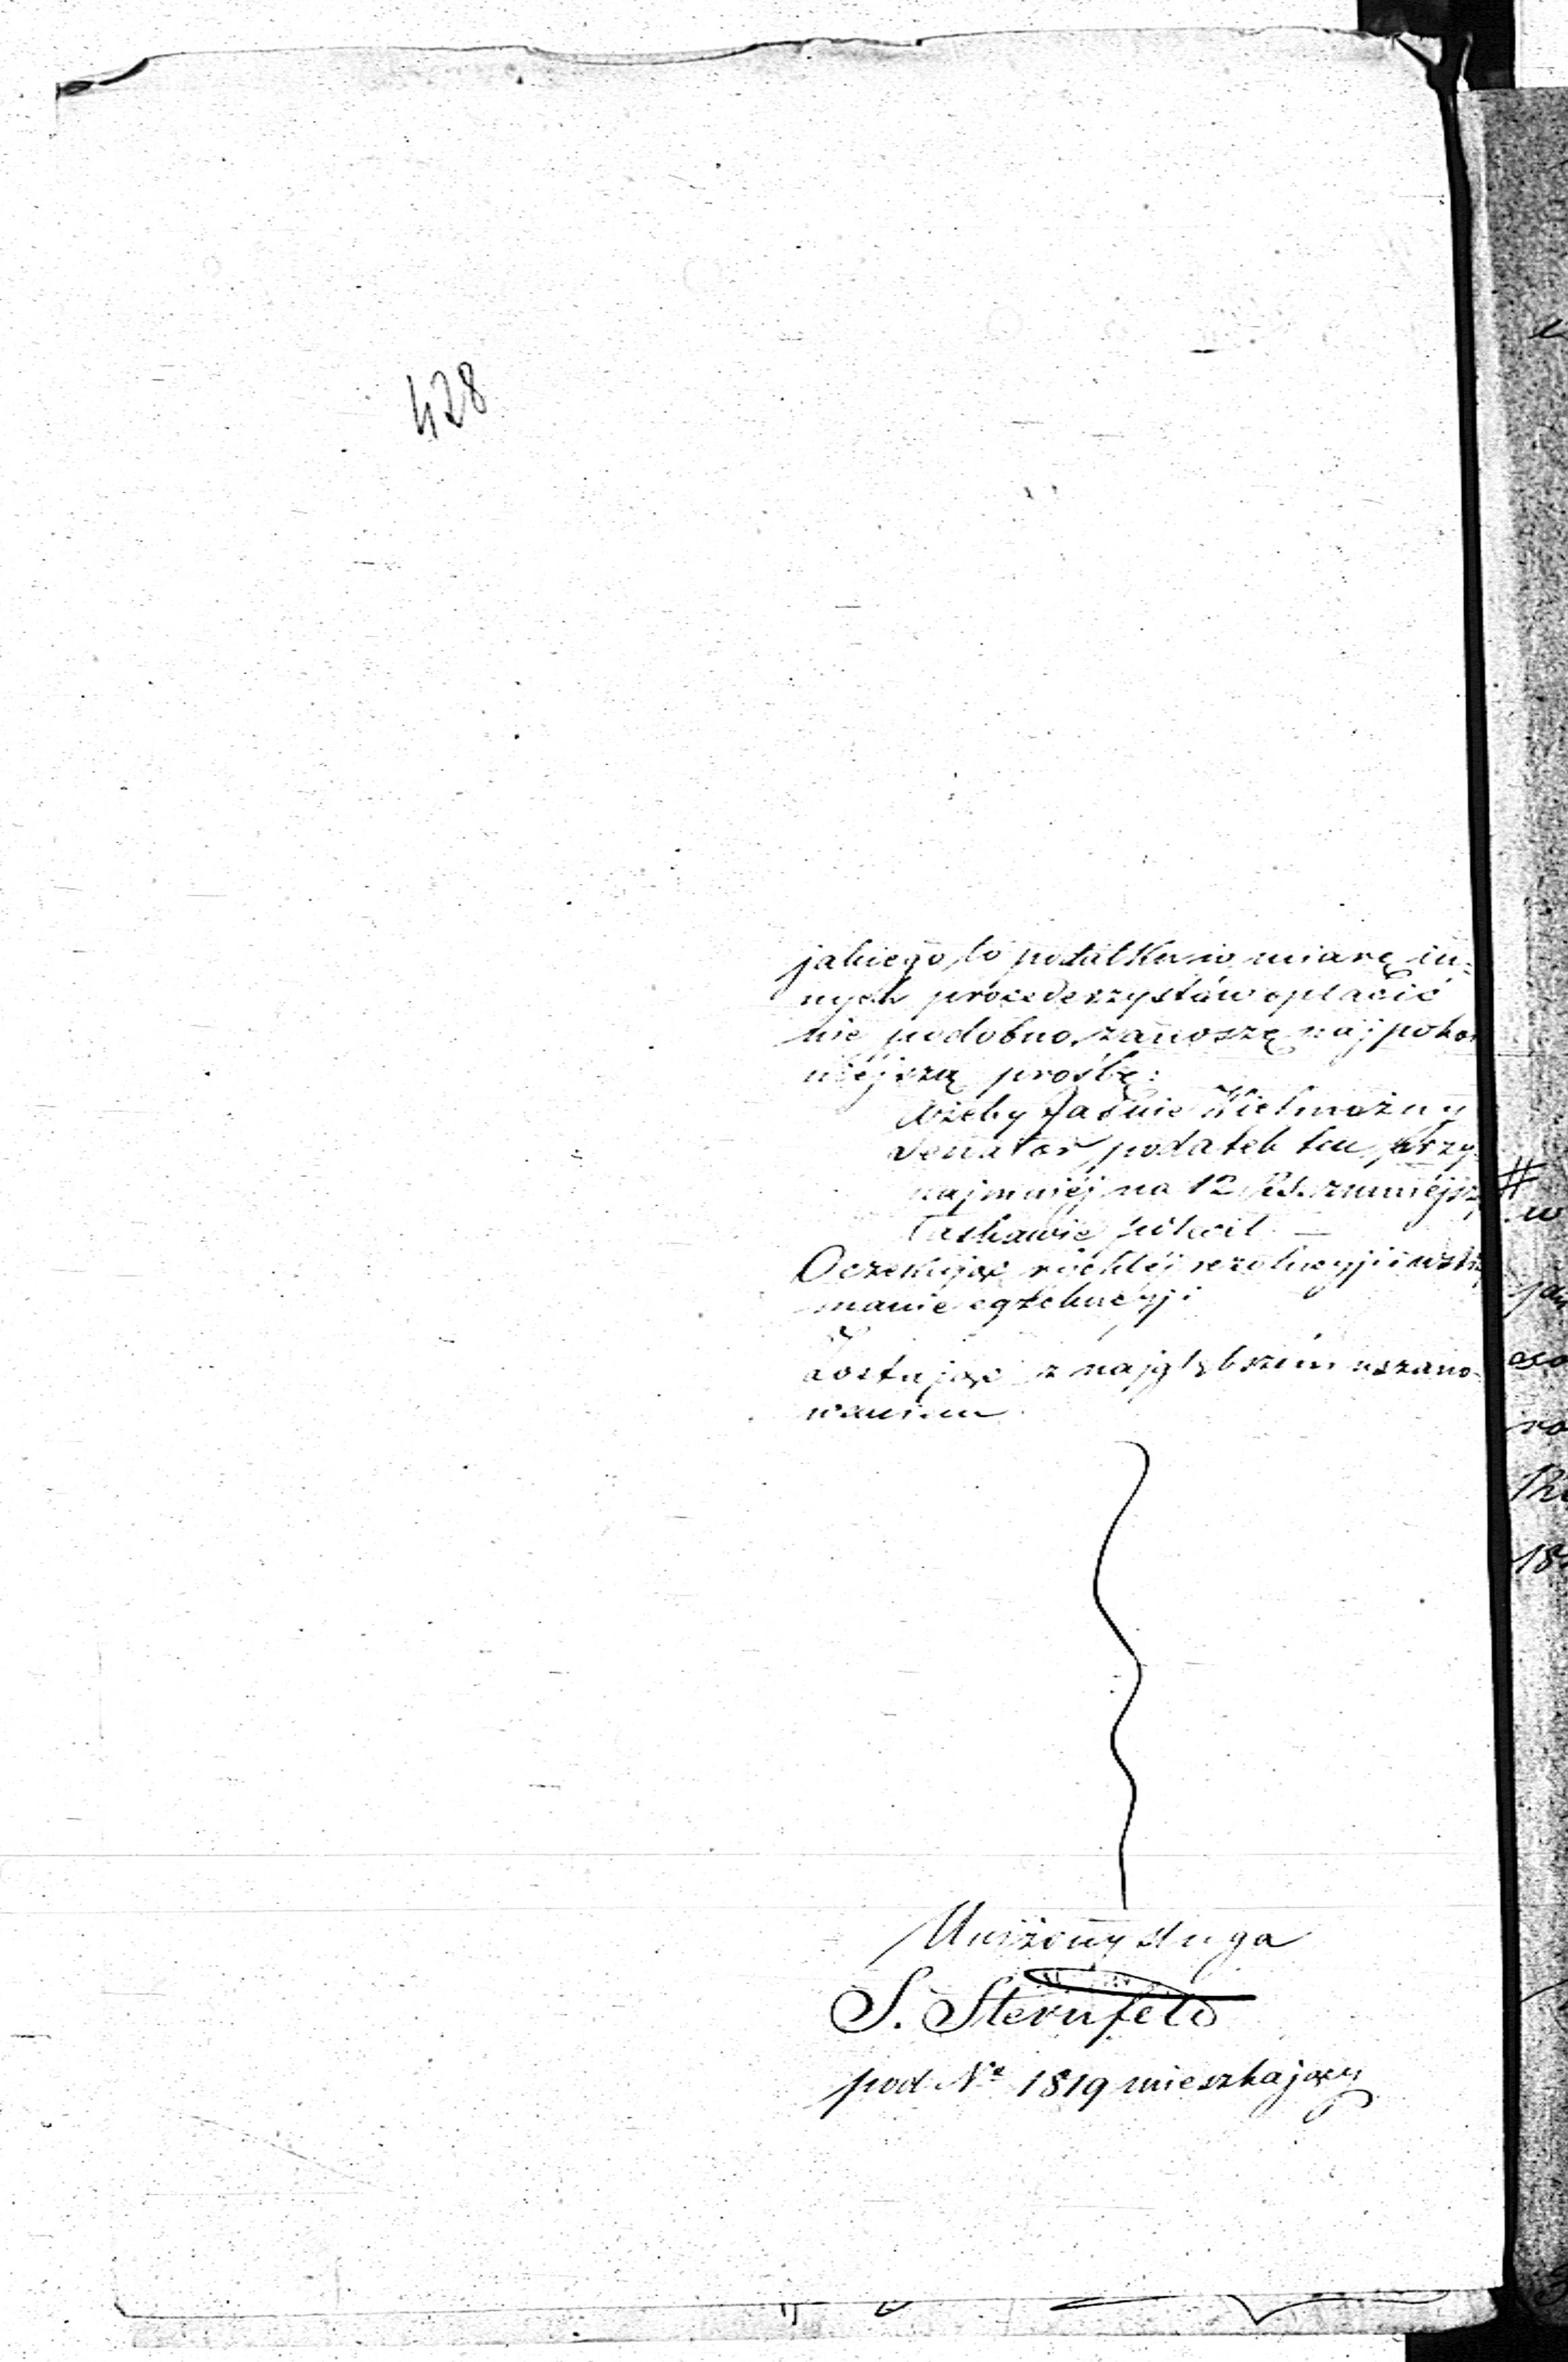 428
jakiego to podatku w miarę in=
nych procederzystów opłacić
nie podobno, zanoszę najpokor
niéjszą prośbę:
ażeby Jaśnie Wielmożny
Senator podatek ten przy
najmniéj na 12 Rs. zmniéjsz
łaskawie polecił. —
Oczekując rychłéj rezolucyji i wstrz
manie egzekucyji
Zostając z najgłębszém uszano-
waniem
Uniżony sługa
S. Sternfeld
pod Nº 1819 mieszkający